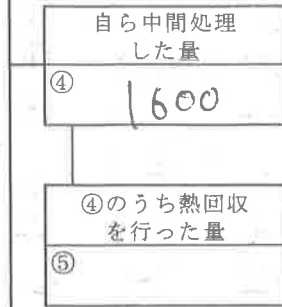 自ら中間処理
した量
④
1600
④のうち熱回収
を行った量
⑤